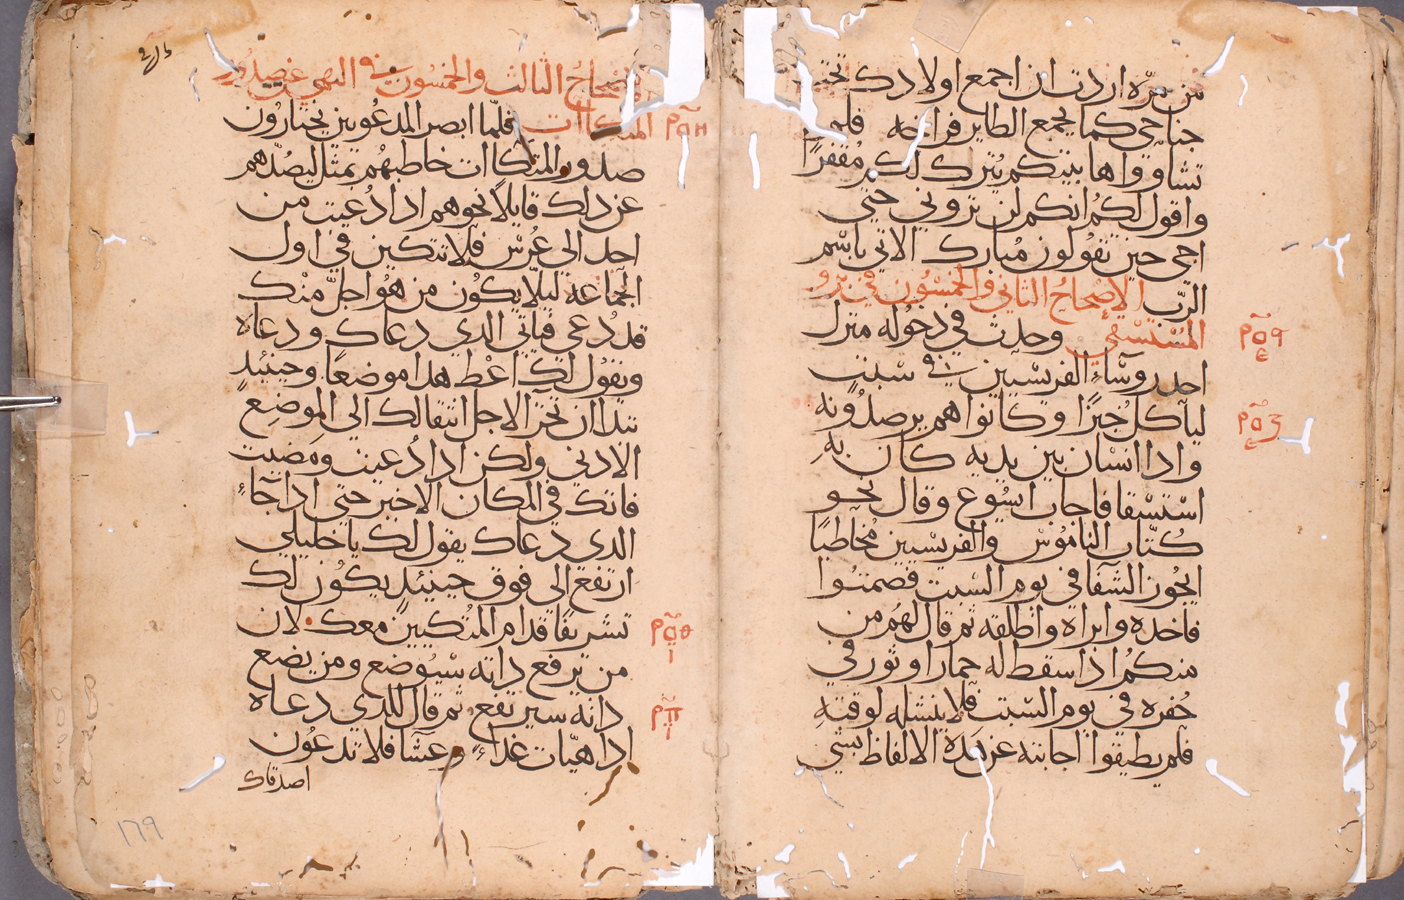 من مرّه اردت ان اجمع اولادك تحت
جناحي كما يجمع الطاير فراخه فلم
تشاووا ها بيتكم يترك لكم مقفرًا
واقول لكم انكم لن تروني حتي
اجي حين تقولون مبارك الاتي باسم
الربّ الإصحاحُ الثاني والخمسُون في برو
المُسْتسْقي وحدث في دخوُله منزل
احد روسَاءِ الفريسَيين في سَبتٍ
ليآكل خبزًا وكانوا هم يرصدُونه
واذا انسان بين يديه كان به
اسْتسْقا فاجاب ايسُوع وقال نحو
كتّاب النامُوس والفريسيين مُخاطبًا
ايجُوز الشفا في يوم السَبت فصمتُوا
فاخده وابراه واطلقه تم قال لهم من
منكمُ اذا سقط له حمار او ثور في
حُفره في يوم السَبت فلا ينشله لوقته
فلم يطيقوا اجابته عن هذه الالفاظ بشي
الإصحاحُ الثالث والخمسُون في النهي عن صدور
المتكاات فلمّا ابصر المدعُوين يختارُون
صدور المتكاات خاطبهُم بمَثل ليصُدّهم
عن دلك قايلًا نحوهم ادا دُعيت من
احد الى عُرس فلا تتكين في اول
الجماعه ليلّا يكون من هُو اجلّ منك
قد دُعي فياتي الدي دعاك ودعاه
ويقوُل لك اعْط هدا موضعًا وحينئدٍ
تبدا ان تخزا لاجل انتقالك الي الموضع
الادني ولكن ادا دُعيت ومَضيت
فاتك في المكان الاخير حتي ادا جَاءَ
الدي دعاك يقول لك يا خليلي
ارتفع الى فوق حينئدٍ يكون لك
تشريفًا قدام المتُكيين معك لان
من يرفع داته سيُوضع ومن يضع
داته سيرتفع تم قال للدي دعاه
ادا هيّات غداءً وعشَا فلا تدعُون
اصدقاك
١٦٩